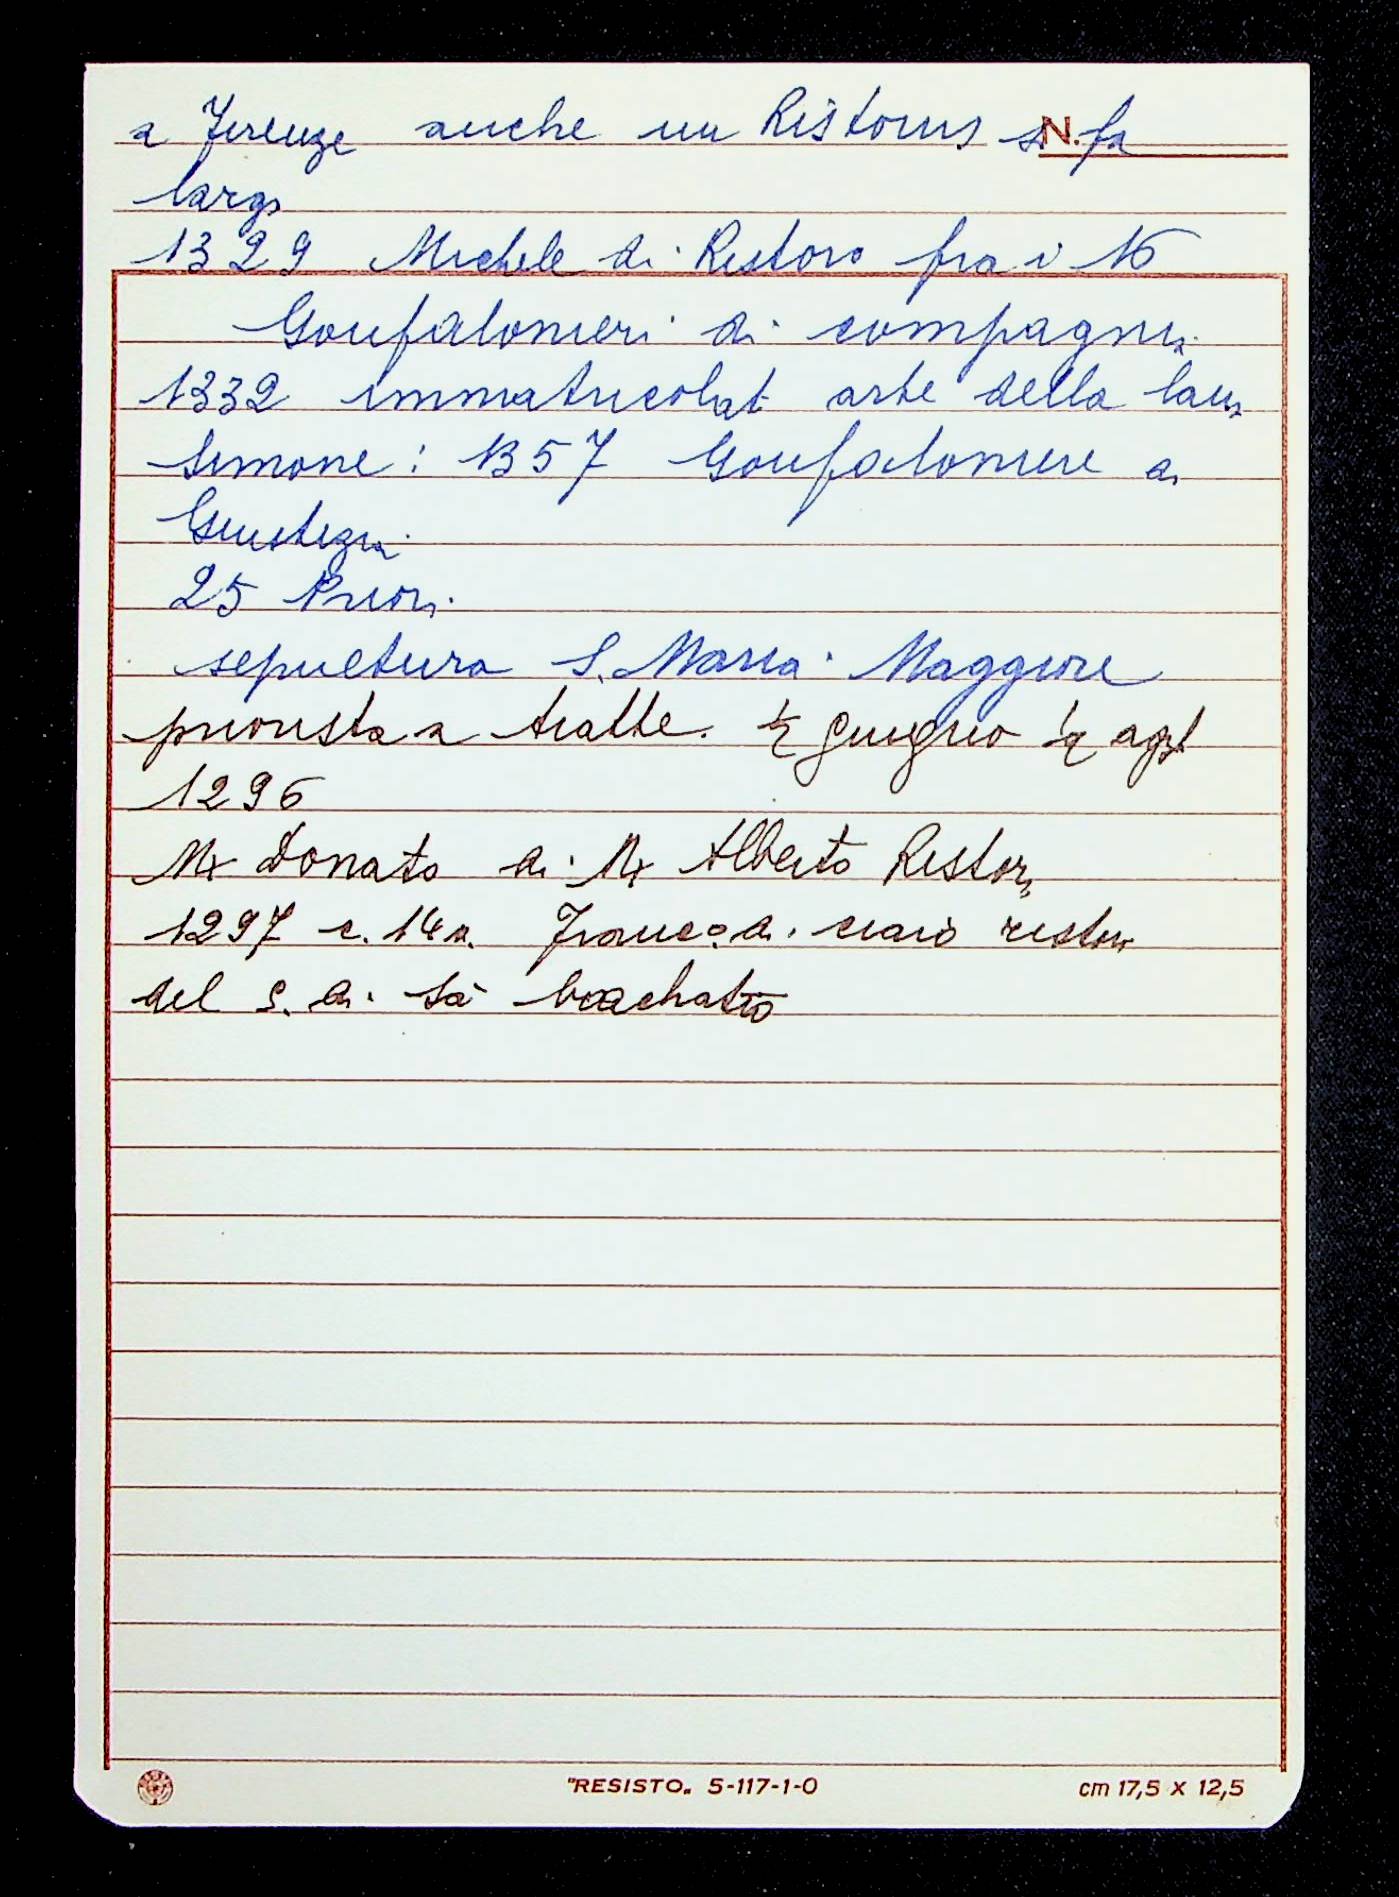 a Firenze anche un Ristorus si fa
N.
largo
1329 Michele di Ristoro fra i 16
Gonfalonieri di compagnia
1332 immatricolat arte della lana
Simone: 1357 Gonfaloniere di
Giustizia
25 Priori
sepultura S. Maria Maggiore
priorista a tratte. ½ giugno ½ agst
1296
Mx Donato di Mx Alberto Ristori
1297 c. 14 Franc.o di ristori
del S. di
"RESISTO„ 5-117-1-0
cm 17,5 x 12,5